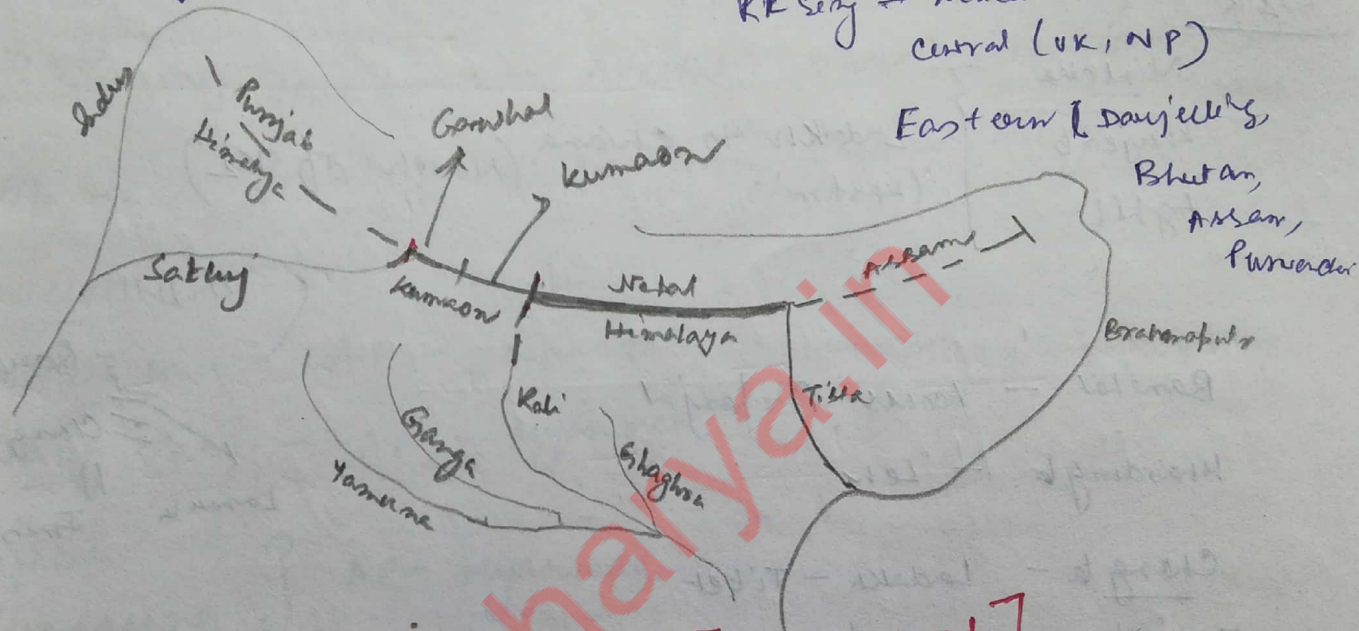 RK
Central (UK, NP)
Eastern ( Darjelling,
Bhutan,
Assam,
Indus
Punjab
Himalya
Garwhal
Kumaon
Satluj
Kumaon
Nepal
Himalaya
Assam
Brahmaputra
Kali
Tista
Ganga
Ghaghra
Yamuna
harya.in